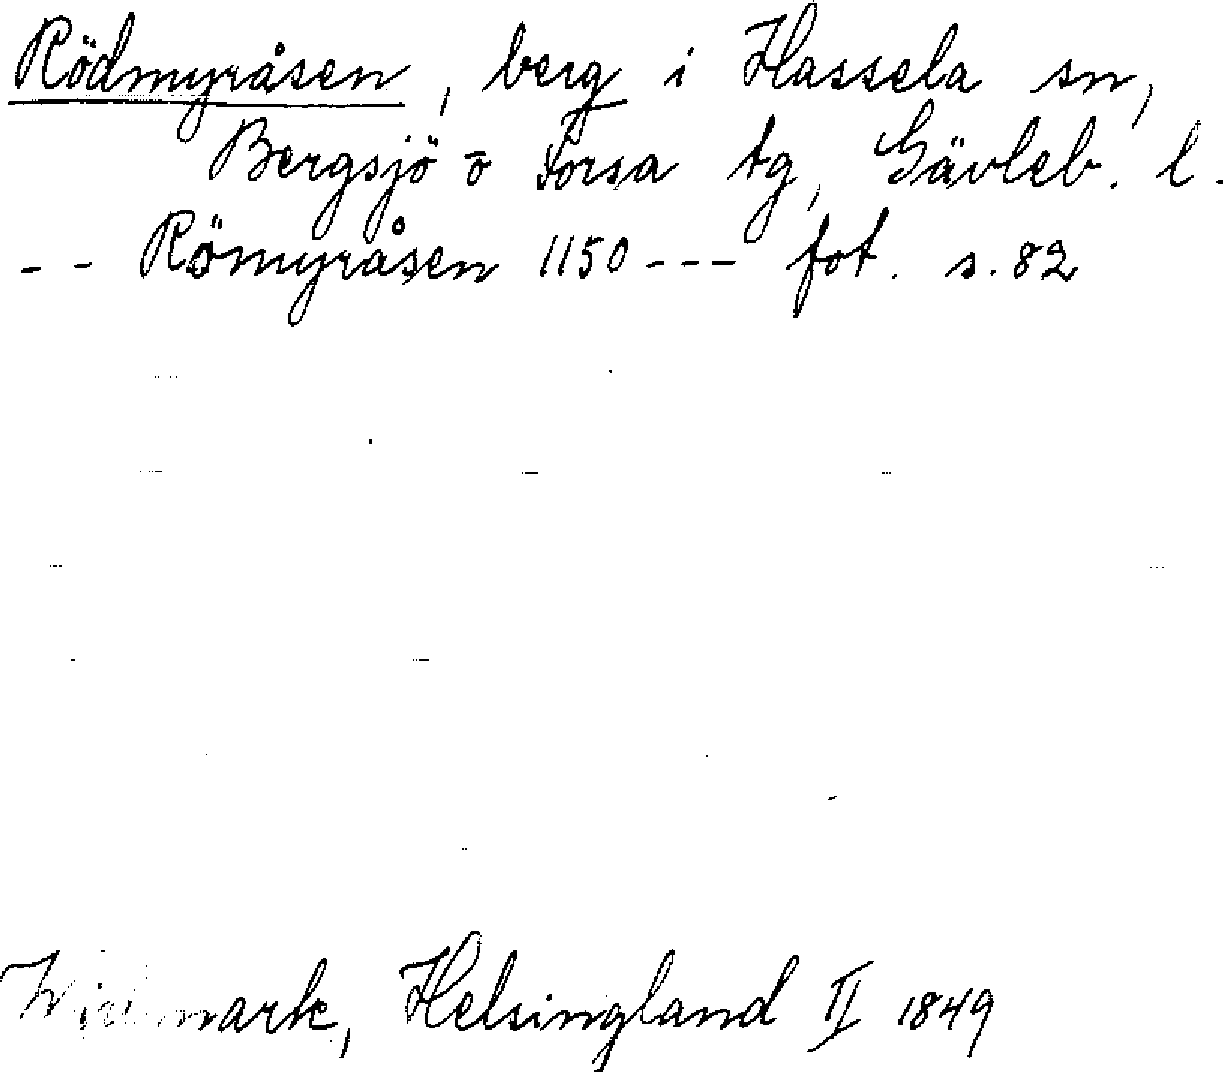 Rödmyråsen, berg i Hassela sn,
Bergsjö o Forsa tg, Gävleb. l.
-- Römyråsen 1150--- fot. s. 82
Widmark, Helsingland II 1849